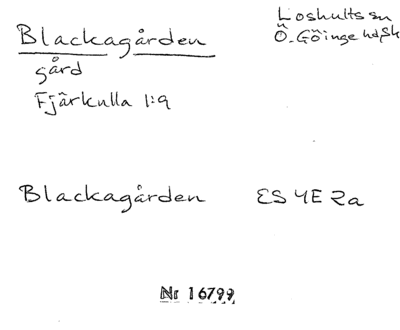 Blackagården
Loshults sn
Ö. Göinge hd, Sk
gård
Fjärkulla 1:9
Blackagården ES 4E 2a
Nr 16799